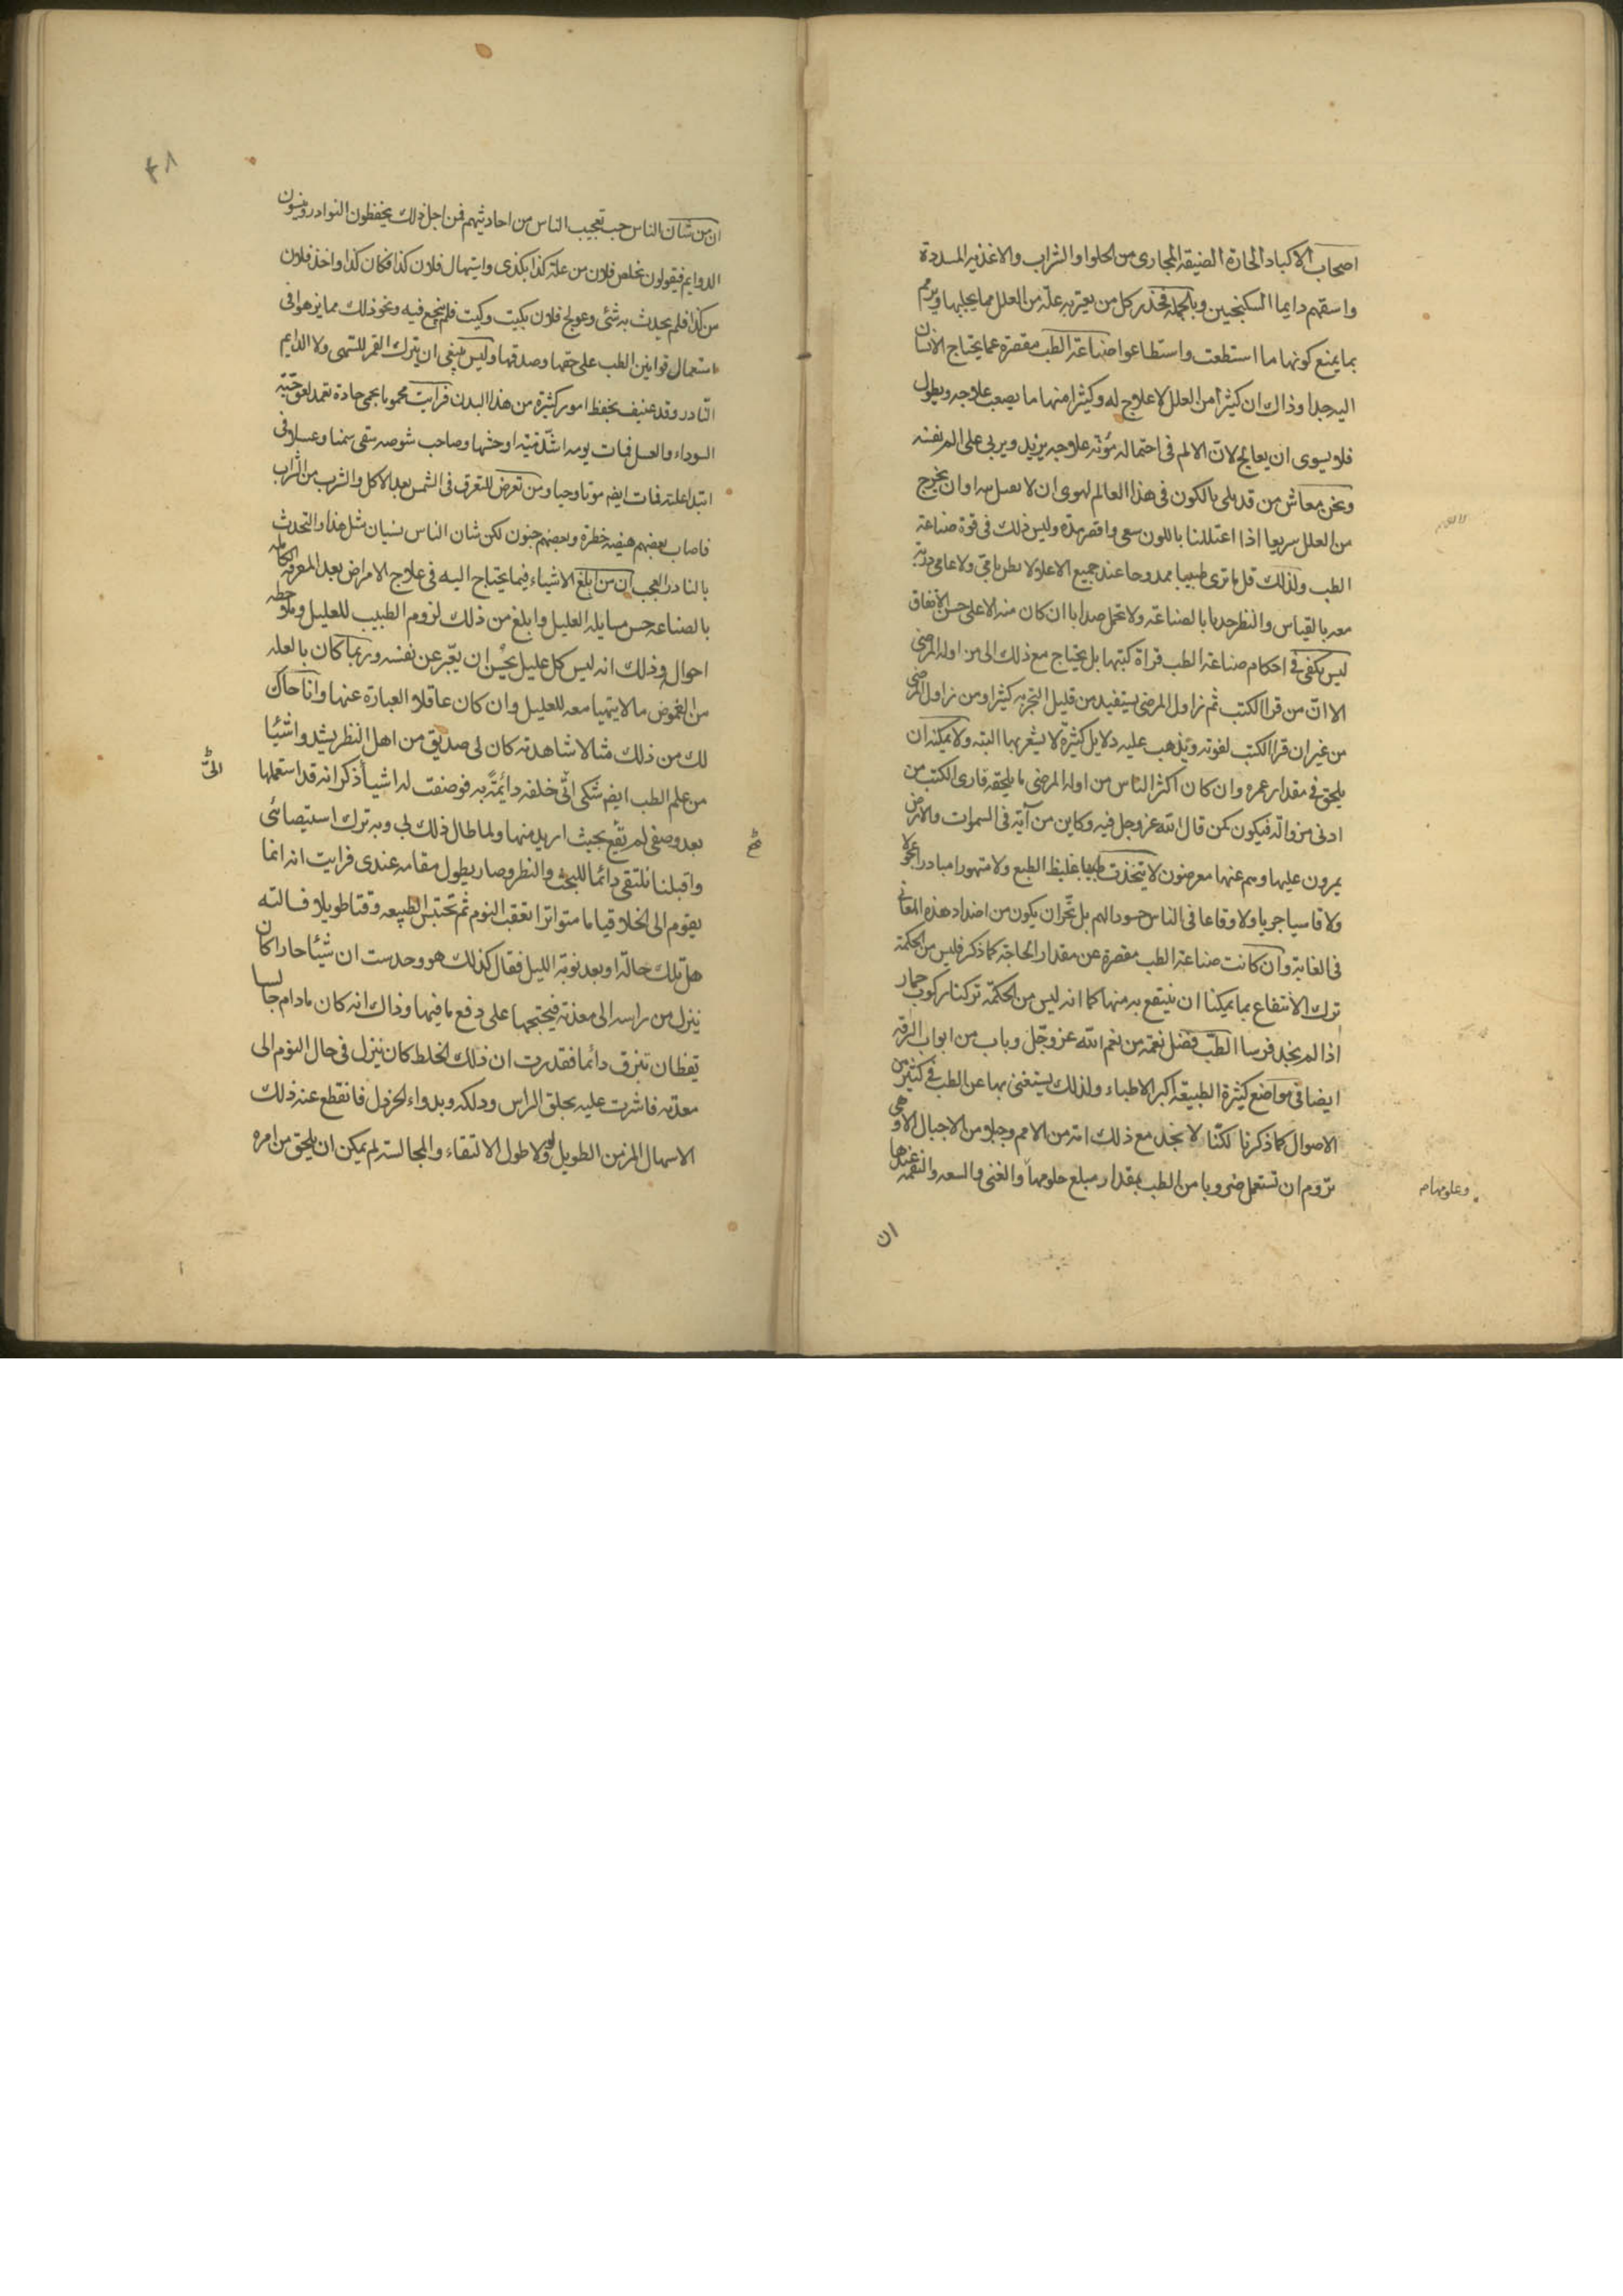 اصحاب الاكباد الحارة الضيقة المجارى من الحلوا والشراب والاغذية المسددة
واسقهم دايما السكنجبين وبالجمله فحذر كل من يعتريه علة من العلل مما يجلبها ومرهم
بما يمنع كونها ما استطعت واستطاعوا صناعة الطب مقصرة عما يحتاج الانسان
اليه جدا وذاك ان كثيرا من العلل لا علاج له وكثيرا منها ما يصعب علاجه ويطول
فلا يسوى ان يعالج لان الالم فى احتمال مؤنة علاجه يزيد ويربى على الم نفسه
ونحن معاش من قد بلى بالكون فى هذا العالم نهوى ان لا نعتل او ان نخرج
من العلل سريعا اذا اعتللنا باللون سعى واقصر مدة وليس ذلك فى قوة صناعة
الطب ولذلك قل ما ترى طبيبا ممدوحا عند جميع الاعلاء
معه بالقياس والنظر بالصناعة ان كان منه الا على حسن الاتفاق
ليس يكفى فى احكام صناعة الطب قراة كتبها بل يحتاج مع ذلك الى مزاولة المرضى
الا ان من قرا الكتب ثم زاول المرضى يستفيد من قليل التجربة كثيرا ومن زاول المرضى
من غير ان قرا الكتب لفوته ويذهب عليه دلايل كثيرة لا يشعر بها البته ولا يمكنه ان
يلحق فى مقدار عمره وان كان اكثر الناس مزاولة للمرضى ما يلحقه قارى الكتب من
ادنى مزوالة فيكون كمن قال الله عز وجل فيه وكاين من آية فى السموات والارض
يمرون عليها وهم عنها معرضون لا يتخذن طبيبا غليظ الطبع ولا متهورا مبادرا عجولا
ولا قاسيا جريا ولا وقاعا فى الناس حسودا لهم بل تحر ان يكون من اضداد هذه المعانى
فى الغاية وان كانت صناعة الطب مقصرة عن مقدار الحاجة كما ذكر فليس من الحكمة
ترك الانتفاع بما يمكننا ان ننتفع به منها كما انه ليس من الحكمة تركنا ركوب حمار
اذا لم يجد فرسا الطب فضل نعمة من نعم الله عز وجل وباب من ابواب الرقة
ايضا فى مواضع كثيرة الطبيعة اكبر الاطباء ولذلك يستغنى بها عن الطب فى كثير من
الاصوال كما ذكرنا لكنا لا نجد مع ذلك امة من الامم وجيلا من الاجيال الا وهى
تروم ان تستعمل ضروبا من الطب بمقدار مبلغ حلومها والغنى والسعه والنعمة عندها
وعلومها م
ان
٣٨
ان من شان الناس حب تعجيب الناس من احاديثهم فمن اجل ذلك يحفظون النوادر وينسون
الدوايم فيقولون تخلص فلان من علة كذا بكذى واستهال فلان كذا فكان كذا واخذ فلان
من كذا فلم يحدث به شئى وعولج فلان بكيت وكيت فلم ينجع فيه ونحو ذلك مما يزهد فى
استعمال قوانين الطب على حقها وصدقها وليس ينبغى ان يترك القمر للسهى ولا الدايم
النادر وقد عنيف بحفظ امور كثيرة من هذا البدن فرايت محموما بحمى حادة تعمد لعق حتته
السوداء والعسل فمات يومه اشد ميتة اوحشها وصاحب شوصه سقى سمنا وعسلا فى
ابتدا علته فمات ايضا موتا وحيا ومن تعرض للتعرق فى الشمس بعد الاكل والشرب من الشراب
فاصاب بعضهم هيضه خطرة وبعضهم جنون لكن شان الناس نسيان مثل هذا والتحدث
بالنادر العجب ان من ابلغ الاشياء فيما يحتاج اليه فى علاج الامراض بعد المعرفة الكامله
بالصناعه حسن مسايلة العليل وابلغ من ذلك لزوم الطبيب للعليل وملاحظه
احوال وذلك انه ليس كل عليل يحسن ان يعبر عن نفسه وربما كان بالعلة
من الغموض ما لا يتهيا معه للعليل وان كان عاقلا العبارة عنها وانا حاك
لك من ذلك مثالا شاهدته كان لى صديق من اهل النظر يشدوا شئيا
من علم الطب ايضا شكى الى خلفه دائمة به فوصفت له اشيأ ذكر انه قد استعملها
الىّ
بعد وصفى لم تقع بحيث اريد منها ولما طال ذلك بى وبه ترك استيصائى
واقبلنا نلتقى دائما للبحث والنظر وصار يطول مقامه عندى فرايت انه انما
يقوم الى الخلا قياما متواترا تعقب النوم ثم تحتبس الطبيعه وقتا طويلا فسالته
هل تلك حاله ابعد نوبة الليل فقال كذلك هو وحدست ان شيئا حارا كان
ينزل من راسه الى معدته فيحتجها على دفع ما فيها وذاك انه كان ما دام جالسا
يقظان تبزق دائما فقدرت ان ذلك الخلط كان ينزل فى حال النوم الى
معدته فاشرت عليه بحلق الراس ودلكه وبدواء الخردل فانقطع عنه ذلك
الاسهال المزمن الطويل ولولا طول الالتقاء والمجالسة لم يمكن ان يلحق من امره